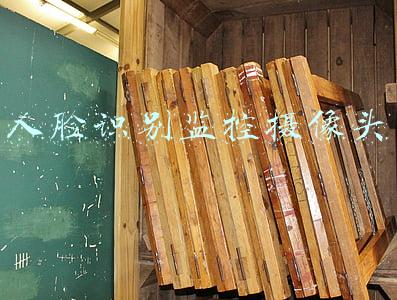 人脸识别监控摄像头